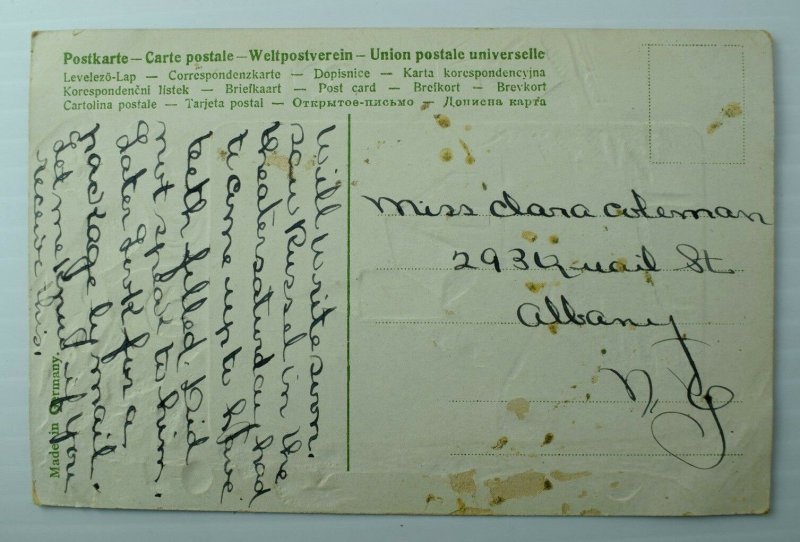 Postkarte — Carte postale — Weltpostverein — Union postale universelle
Levelező-Lap — Correspondenzkarte — Dopisnice — Karta korespondencyjna
Korespondenční lístek — Briefkaart — Post card — Brefkort — Brevkort
Cartolina postale — Tarjeta postal — Открытое-письмо — Дописна карта
Will write soon.
saw Russel in the
theater saturday had
to come up to have
teeth filled. Did
not speak to him.
Later look for a
package by mail.
Let me know if you
receive this.
Miss Clara Coleman
293 Quail St
Albany
N.Y.
Made in Germany.